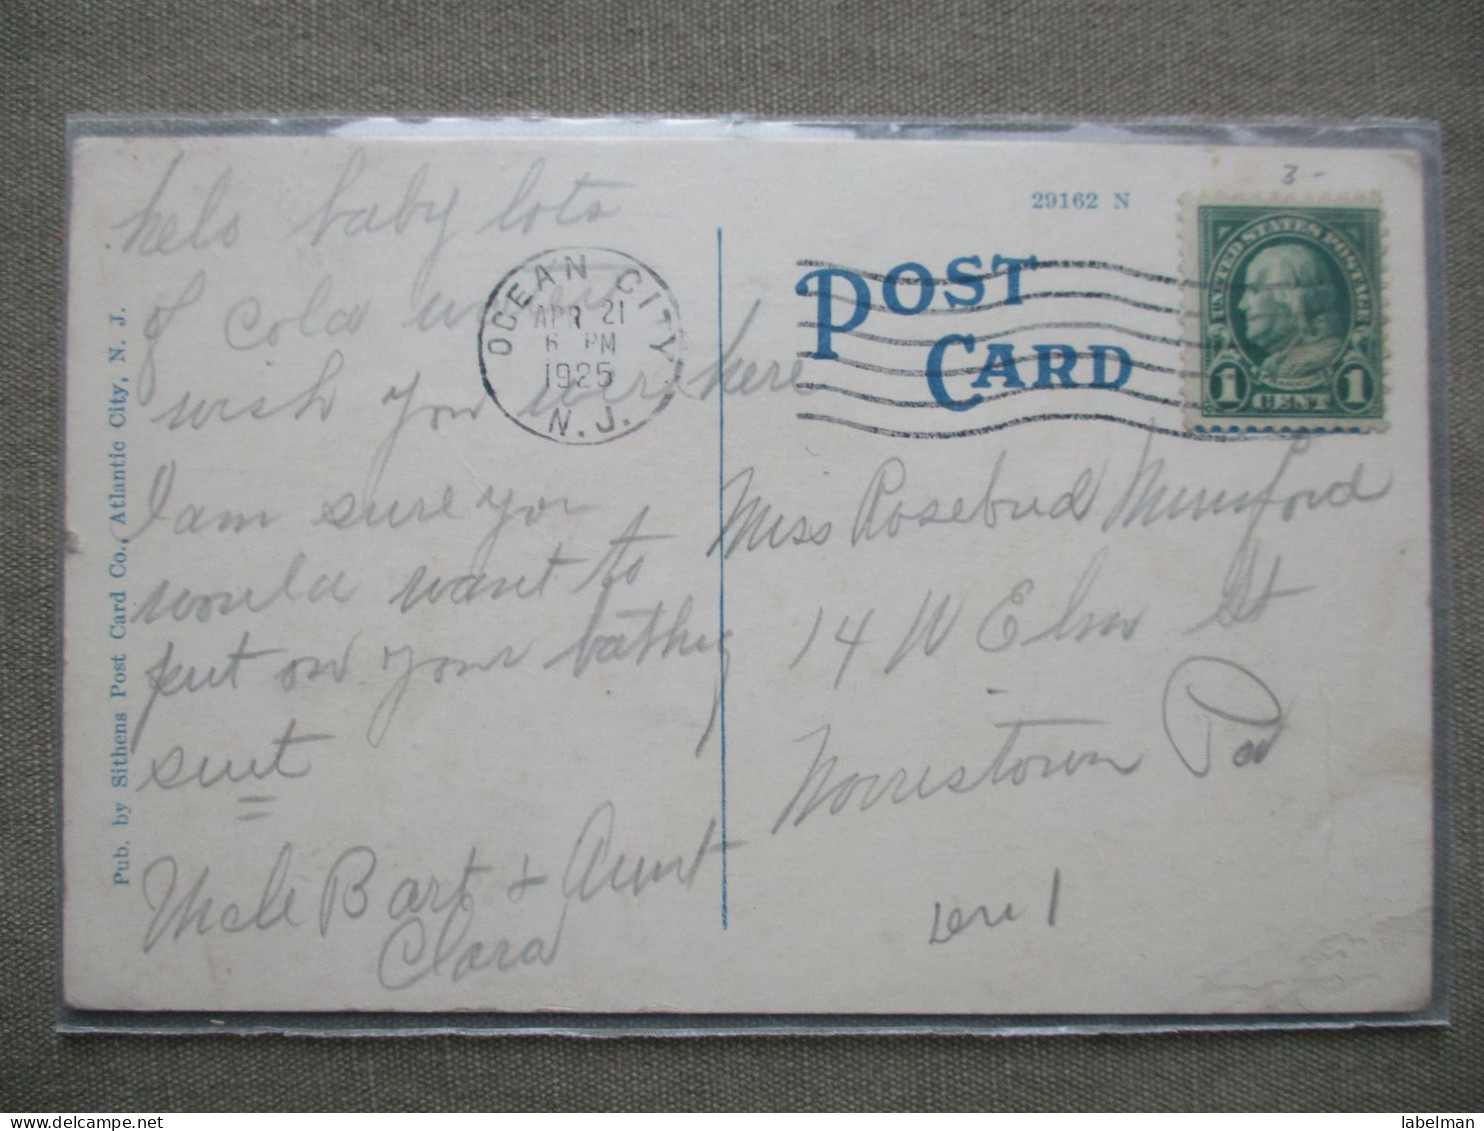 helo baby lots
of cold
wish you were here
I am sure you
would want to
put on your bathing
suet
Uncle Bart & Aunt
Clara
Pub. by Sithens Post Card Co., Atlantic City, N. J.
OCEAN CITY
APR 21
6 PM
1925
N.J.
29162 N
3-
POST
CARD
UNITED STATES POSTAGE
FRANKLIN
1 CENT 1
Miss Rosebud Mumford
14 W Elm St
Norristown Pa
labelman
www.delcampe.net